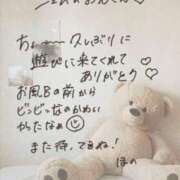 ちょーー久しぶりに
遊びに来てくれて
ありがとう♡
お風呂の前から
ビンビンなのかわい
かったなぁ☺
また待ってるね!
ほの